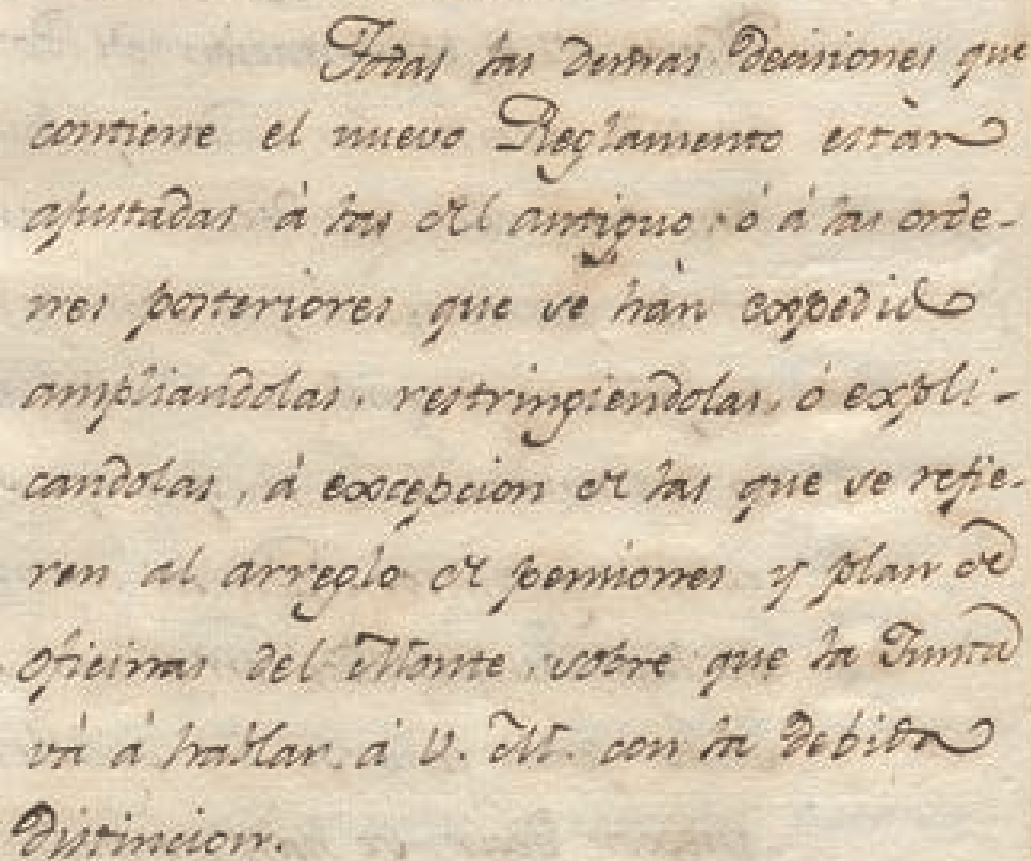 Todas las demas decisiones que
contiene el nuevo Reglamento están
ajustadas á las del antiguo, ó á las orde-
nes posteriores que se hán expedido
ampliandolas, restringiendolas, ó expli-
candolas, á excepcion de las que se refie-
ren al arreglo de pensiones y plan de
oficinas del Monte, sobre que la Junta
vá á hablar á V. M. con la debida
distincion.